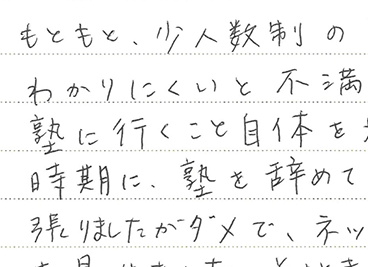 もともと、少人数制の
わかりにくいと不満
塾に行くこと自体を
時期に、塾を辞めて
張りましたがダメで、ネッ